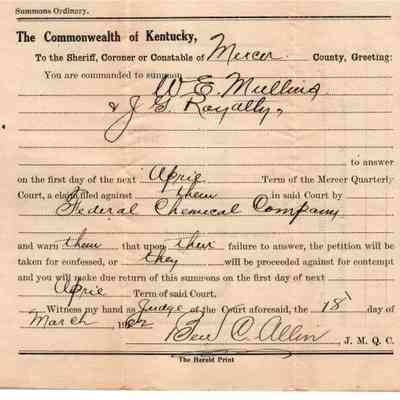 Summons Ordinary.
The Commonwealth of Kentucky,
To the Sheriff, Coroner or Constable of Mercer County, Greeting:
You are commanded to summon W. E. Mullins
& J. G. Royalty,
to answer
on the first day of the next Aprie Term of the Mercer Quarterly
Court, a claim filed against them in said Court by
Federal Chemical Company
and warn them that upon their failure to answer, the petition will be
taken for confessed, or they will be proceeded against for contempt
and you will make due return of this summons on the first day of next
Aprie Term of said Court.
Witness my hand as Judge of the Court aforesaid, the 18 day of
March
Ben C. Allin, J. M. Q. C.
The Herald Print